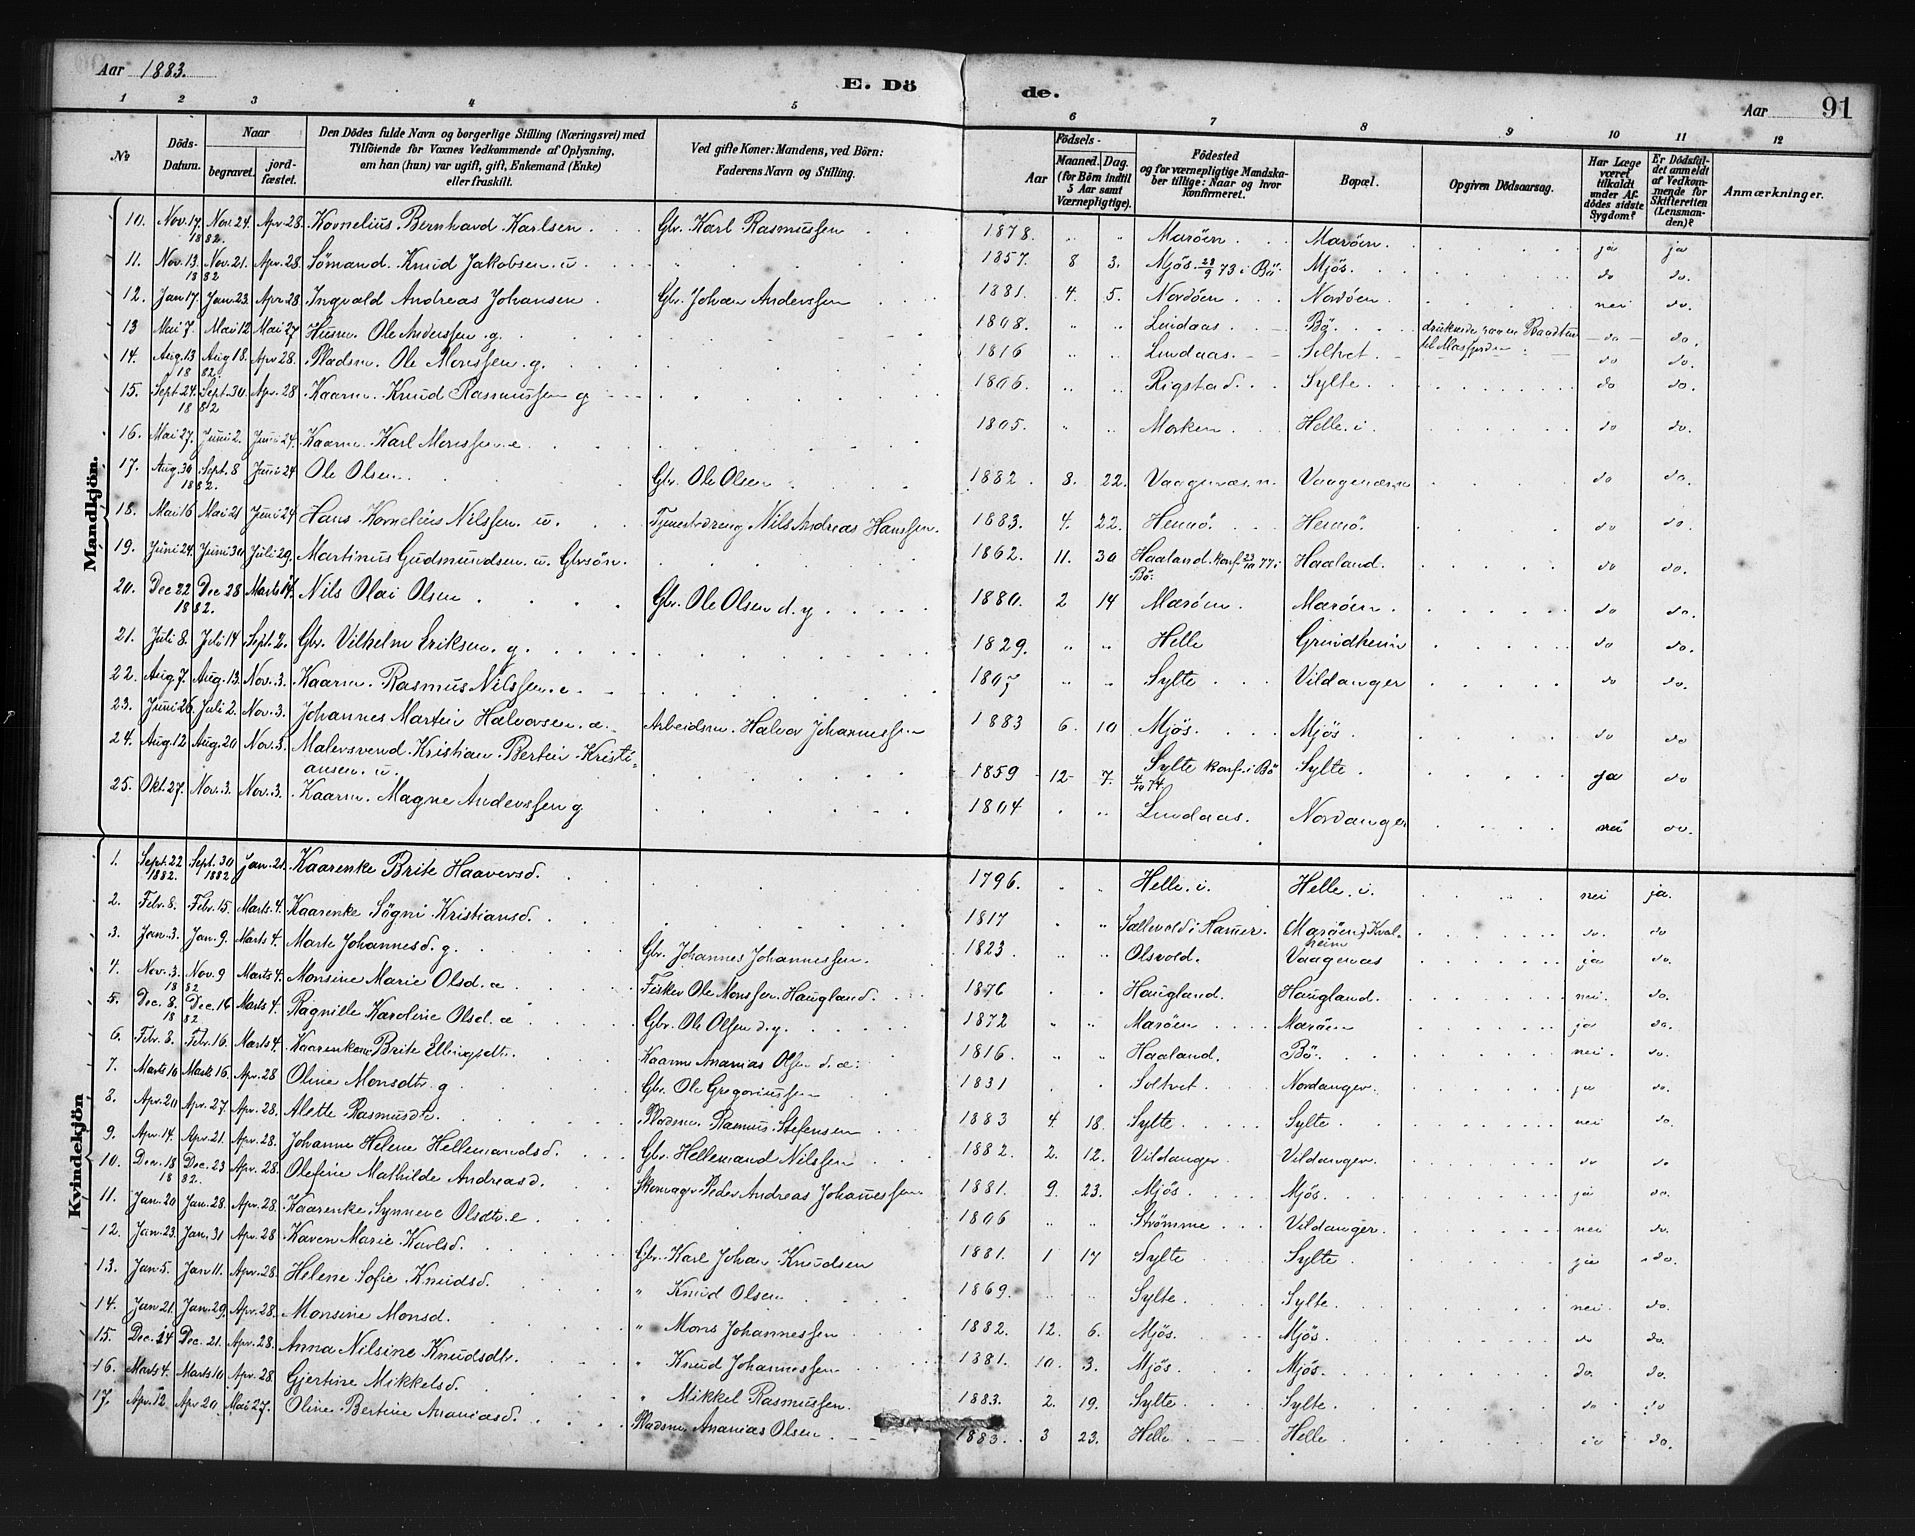 Aar 1883.
E. Dö
de.
Aar
91
1 2 3 4 5 6 7 8 9 10 11 12
№
Döds-Datum.
Naar
begravet.
jord-fæstet.
Den Dödes fulde Navn og borgerlige Stilling (Næringsvei) med
Tilföiende for Voxnes Vedkommende af Oplysning,
om han (hun) var ugift, gift, Enkemand (Enke)
eller fraskilt.
Ved gifte Koner: Mandens, ved Börn:
Faderens Navn og Stilling.
Födsels-
Aar
Maaned. Dag.
(for Börn indtil
5 Aar samt
Værnepligtige).
Födested
og for værnepligtige Mandska-
ber tillige: Naar og hvor
konfirmeret.
Bopæl.
Opgiven Dödsaarsag.
Har Læge
været
tilkaldt
under Af-
dödes sidste
Sygdom?
Er Dödsfal-
det anmeldt
af Vedkom-
mende for
Skifteretten
(Lensman-
den)?
Anmærkninger.
Mandkjön.
10. Nov. 17. 1882. Nov. 24 Apr. 28. Kornelius Bernhard Karlsen Gbr. Karl Rasmussen 1878. " " Marøen Marøen. ja ja
11. Nov. 13. 1882 Nov. 21. Apr. 28. Sømand. Knud Jakobsen. u 1857. 8 3. Mjøs. 28/9 73 i Bø Mjøs. do do.
12. Jan 17. Jan. 23. Apr 28 Ingvald Andreas Johansen Gbr. Johan Anderssen 1881. 4. 5. Nordøen Nordøen. nei do.
13 Mai 7. Mai 12 Mai 27 Husm. Ole Anderssen. g. 1808. " " Lindaas. Bø. druknede do do.
14. Aug. 13 1882. Aug 18. Apr 28. Pladsm. Ole Monssen. g. 1816 " " Lindaas. Soltvet do do.
15. Sept. 24. 1882 Sept. 30 Apr. 28 Kaarm. Knud Rasmussen g 1806. " " Rigstad. Sylte. do do.
16. Mai 27. Juni 2. Juni 24. Kaarm. Karl Monssen. e. 1805. " " Morken Helle. i. do do.
17. Aug. 30 1882. Sept. 8 Juni 24 Ole Olsen. Gbr. Ole Olsen 1882 8. 22. Vaagenæs. n. Vaagenæs. n do do.
18. Mai 16 Mai 21 Juni 24 Hans Kornelius Nilssen. u. Tjenestedreng Nils Andreas Hanssen. 1883. 4. 22. Hennø. Hennø. do do.
19. Juni 24. Juni 30 Juli 29. Martinus Gudmundsen. u. Gbrsøn. 1862. 11. 30 Haaland. konf. 23/10 77 i Bø. Haaland. do do.
20. Dec 22 1882. Dec 28 Marts 4. Nils Olai Olsen Gbr. Ole Olsen d. y. 1880. 2 14 Marøen. Marøen. do do.
21. Juli 8. Juli 14 Sept. 2. Gbr. Vilhelm Eriksen. g. 1829. " " Helle Grundheim do do.
22. Aug 7. Aug. 13. Nov. 3. Kaarm. Rasmus Nilssen. e 1807 " " Sylte Vildanger do do.
23. Juni 26. Juli 2. Nov. 3. Johannes Martin Halvorsen. æ. Arbeidsm. Halvor Johannessen 1883 6. 10 Mjøs. Mjøs. do do
24. Aug. 12 Aug. 20 Nov. 3. Malersvend. Kristian Bertin Kristi-
ansen. u. 1859 12 7. Sylte konf. i Bø 4/10 74. Sylte. ja do
25. Okt. 27. Nov. 3. Nov. 3. Kaarm. Magne Anderssen g 1804 " " Lindaas. Nordanger nei do.
Kvindekjön
1. Sept. 22 1882. Sept. 30 1882 Jan. 21. Kaarenke Brite Haaversd. 1796. " " Helle. i. Helle. i. nei ja.
2. Febr. 8. Febr. 15. Marts. 4. Kaarenke Sögni Kristiansd. 1817 " " Sællevold i Hamer. Marøen, Kval-
heim do. do
3. Jan. 3. Jan. 9. Marts 4. Marte Johannesd. g. Gbr. Johannes Johannessen. 1823 " " Olsvold. Vaagenæs ja do.
4. Nov. 3. 1882 Nov. 9 Marts 4. Monsine Marie Olsd. æ Fisker Ole Monssen Haugland. 1876 " " Haugland. Haugland. nei. do.
5. Dec. 8. 1882 Dec. 16 Marts 4. Ragnille Karoline Olsd. æ Gbr. Ole Olsen d. y. 1872 " " Marøen Marøen ja do.
6. Febr. 8. Febr. 16. Marts 4. Kaarenkone Brite Ellingsdtr. Kaarm Ananias Olsen d. æ. 1816. " " Haaland. Bø. nei. do.
7. Marts 10 Marts 16. Apr. 28 Oline Monsdtr. g Gbr. Ole Gregoriussen 1831 " " Soltvet Nordanger. ja do.
8. Apr. 20 Apr. 27. Apr. 28. Alette Rasmusdtr. Pladsm. Rasmus Stefensen 1883 4. 18. Sylte. Sylte. nei do.
9. Apr. 14. Apr. 21. Apr. 28. Johanne Helene Hellemandsd. Gbr. Hellemand Nilssen 1882. 2. 12. Vildanger. Vildanger. do do
10. Dec. 18 1882. Dec. 23 Apr. 28. Olefine Mathilde Andreasd. Skomager Peder Andreas Johannessen. 1881. 9. 23. Mjøs. Mjøs. ja do.
11. Jan. 20 Jan. 28. Apr. 28. Kaarenke Synneve Olsdtr. e 1806 " " Strømme Vildanger. nei do.
12. Jan. 23. Jan. 31 Apr. 28 Karen Marie Karlsd. Gbr. Karl Johan Knudsen 1881. 1 17 Sylte Sylte. ja do.
13. Jan. 5. Jan 11. Apr. 28. Helene Sofie Knudsd. " Knud Olsen 1869. Sylte. Sylte. nei. do.
14. Jan. 21. Jan. 29. Apr. 28. Monsine Monsd. " Mons Johannessen 1882. 12. 6. Mjøs. Mjøs. do do.
15. Dec. 14 Dec. 21. Apr. 28. Anna Nilsine Knudsdtr. " Knud Johannessen 1881. 10. 3. Mjøs. Mjøs. do. do.
16. Marts 4. Marts 10 Apr. 28 Gjertine Mikkelsd. " Mikkel Rasmussen. 1883. 2. 19. Sylte. Sylte. do do
17. Apr. 12. Apr 20. Mai 27. Oline Bertine Ananiasd. Pladsm. Ananias Olsen 1883. 3 23. Helle. Helle. do do.